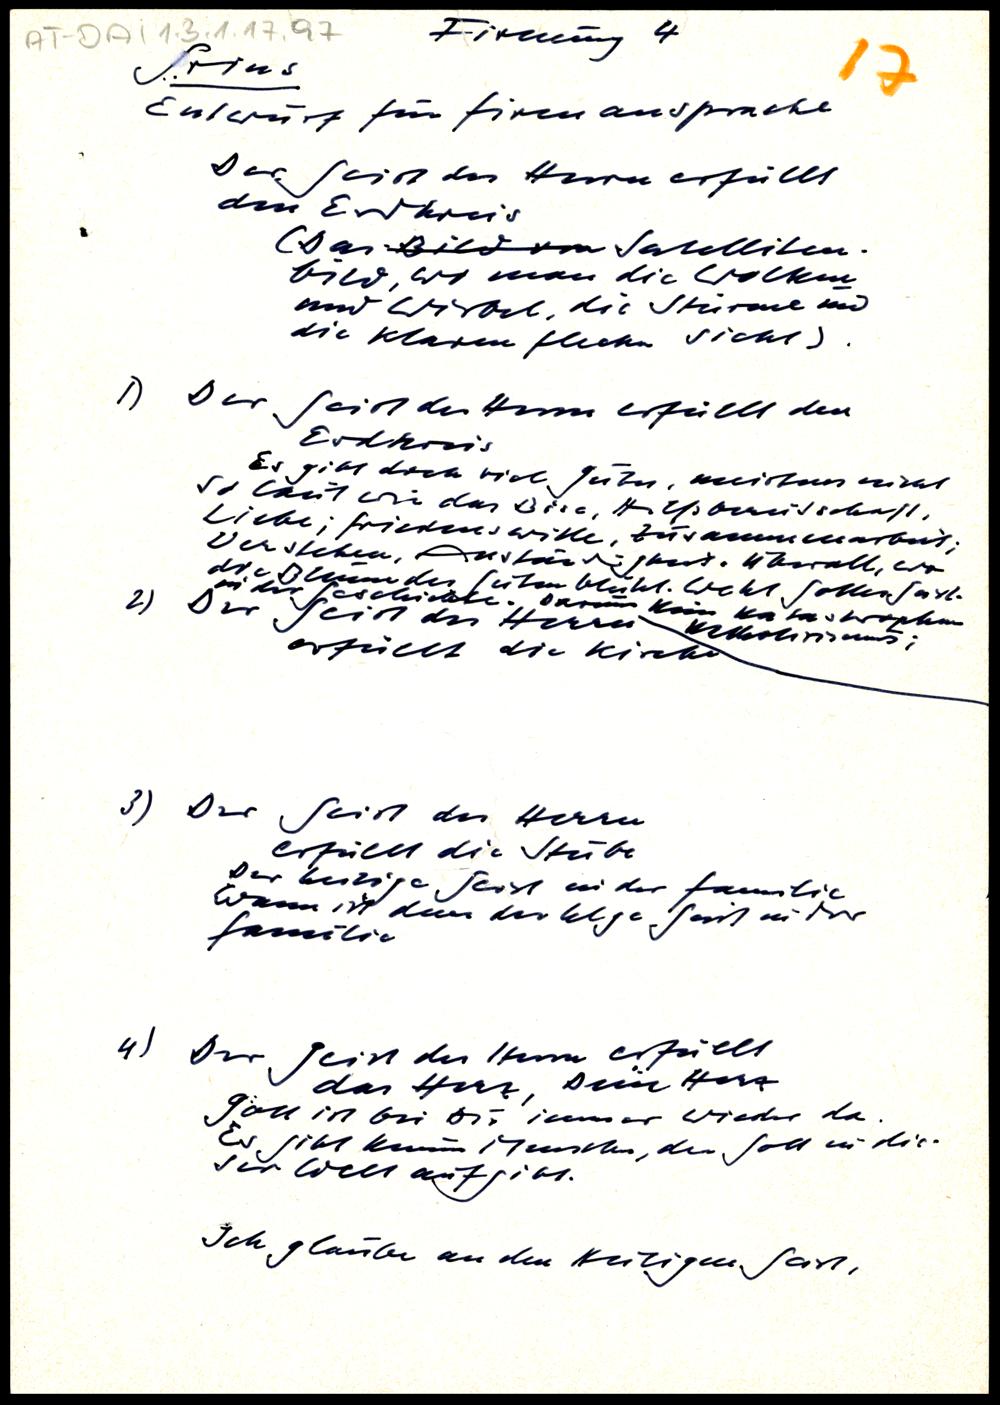 AT-DAI 1.3.1.17.97
Firmung 4
17
Entwurf für Firmansprache
Der Geist des Herrn erfüllt
den Erdkreis
(Das Bild von Satelliten-
bild, wo man die Wolken
und Wirbel, die Stürme und
die klaren Flecken sieht).
1) Der Geist des Herrn erfüllt den
Erdkreis
Es gibt doch viel Gutes, meistens nicht
so laut wie das Böse, Hilfsbereitschaft,
Liebe, Friedenswille, Zusammenarbeit,
Verstehen, Anständigkeit. Überall, wo
die Blume des Guten blüht. Weht Gottes Geist.
in der Geschichte. Darum kein Katastrophen
Katholizismus;
2) Der Geist des Herrn
erfüllt die Kirche
3) Der Geist des Herrn
erfüllt die Stube
Der heilige Geist in der Familie
Wann ist denn der hlge Geist in der
Familie
4) Der Geist des Herrn erfüllt
das Herz, Dein Herz
Gott ist bei Dir immer wieder da.
Es gibt keinen Menschen, den Gott in die-
ser Welt aufgibt.
Ich glaube an den Heiligen Geist.